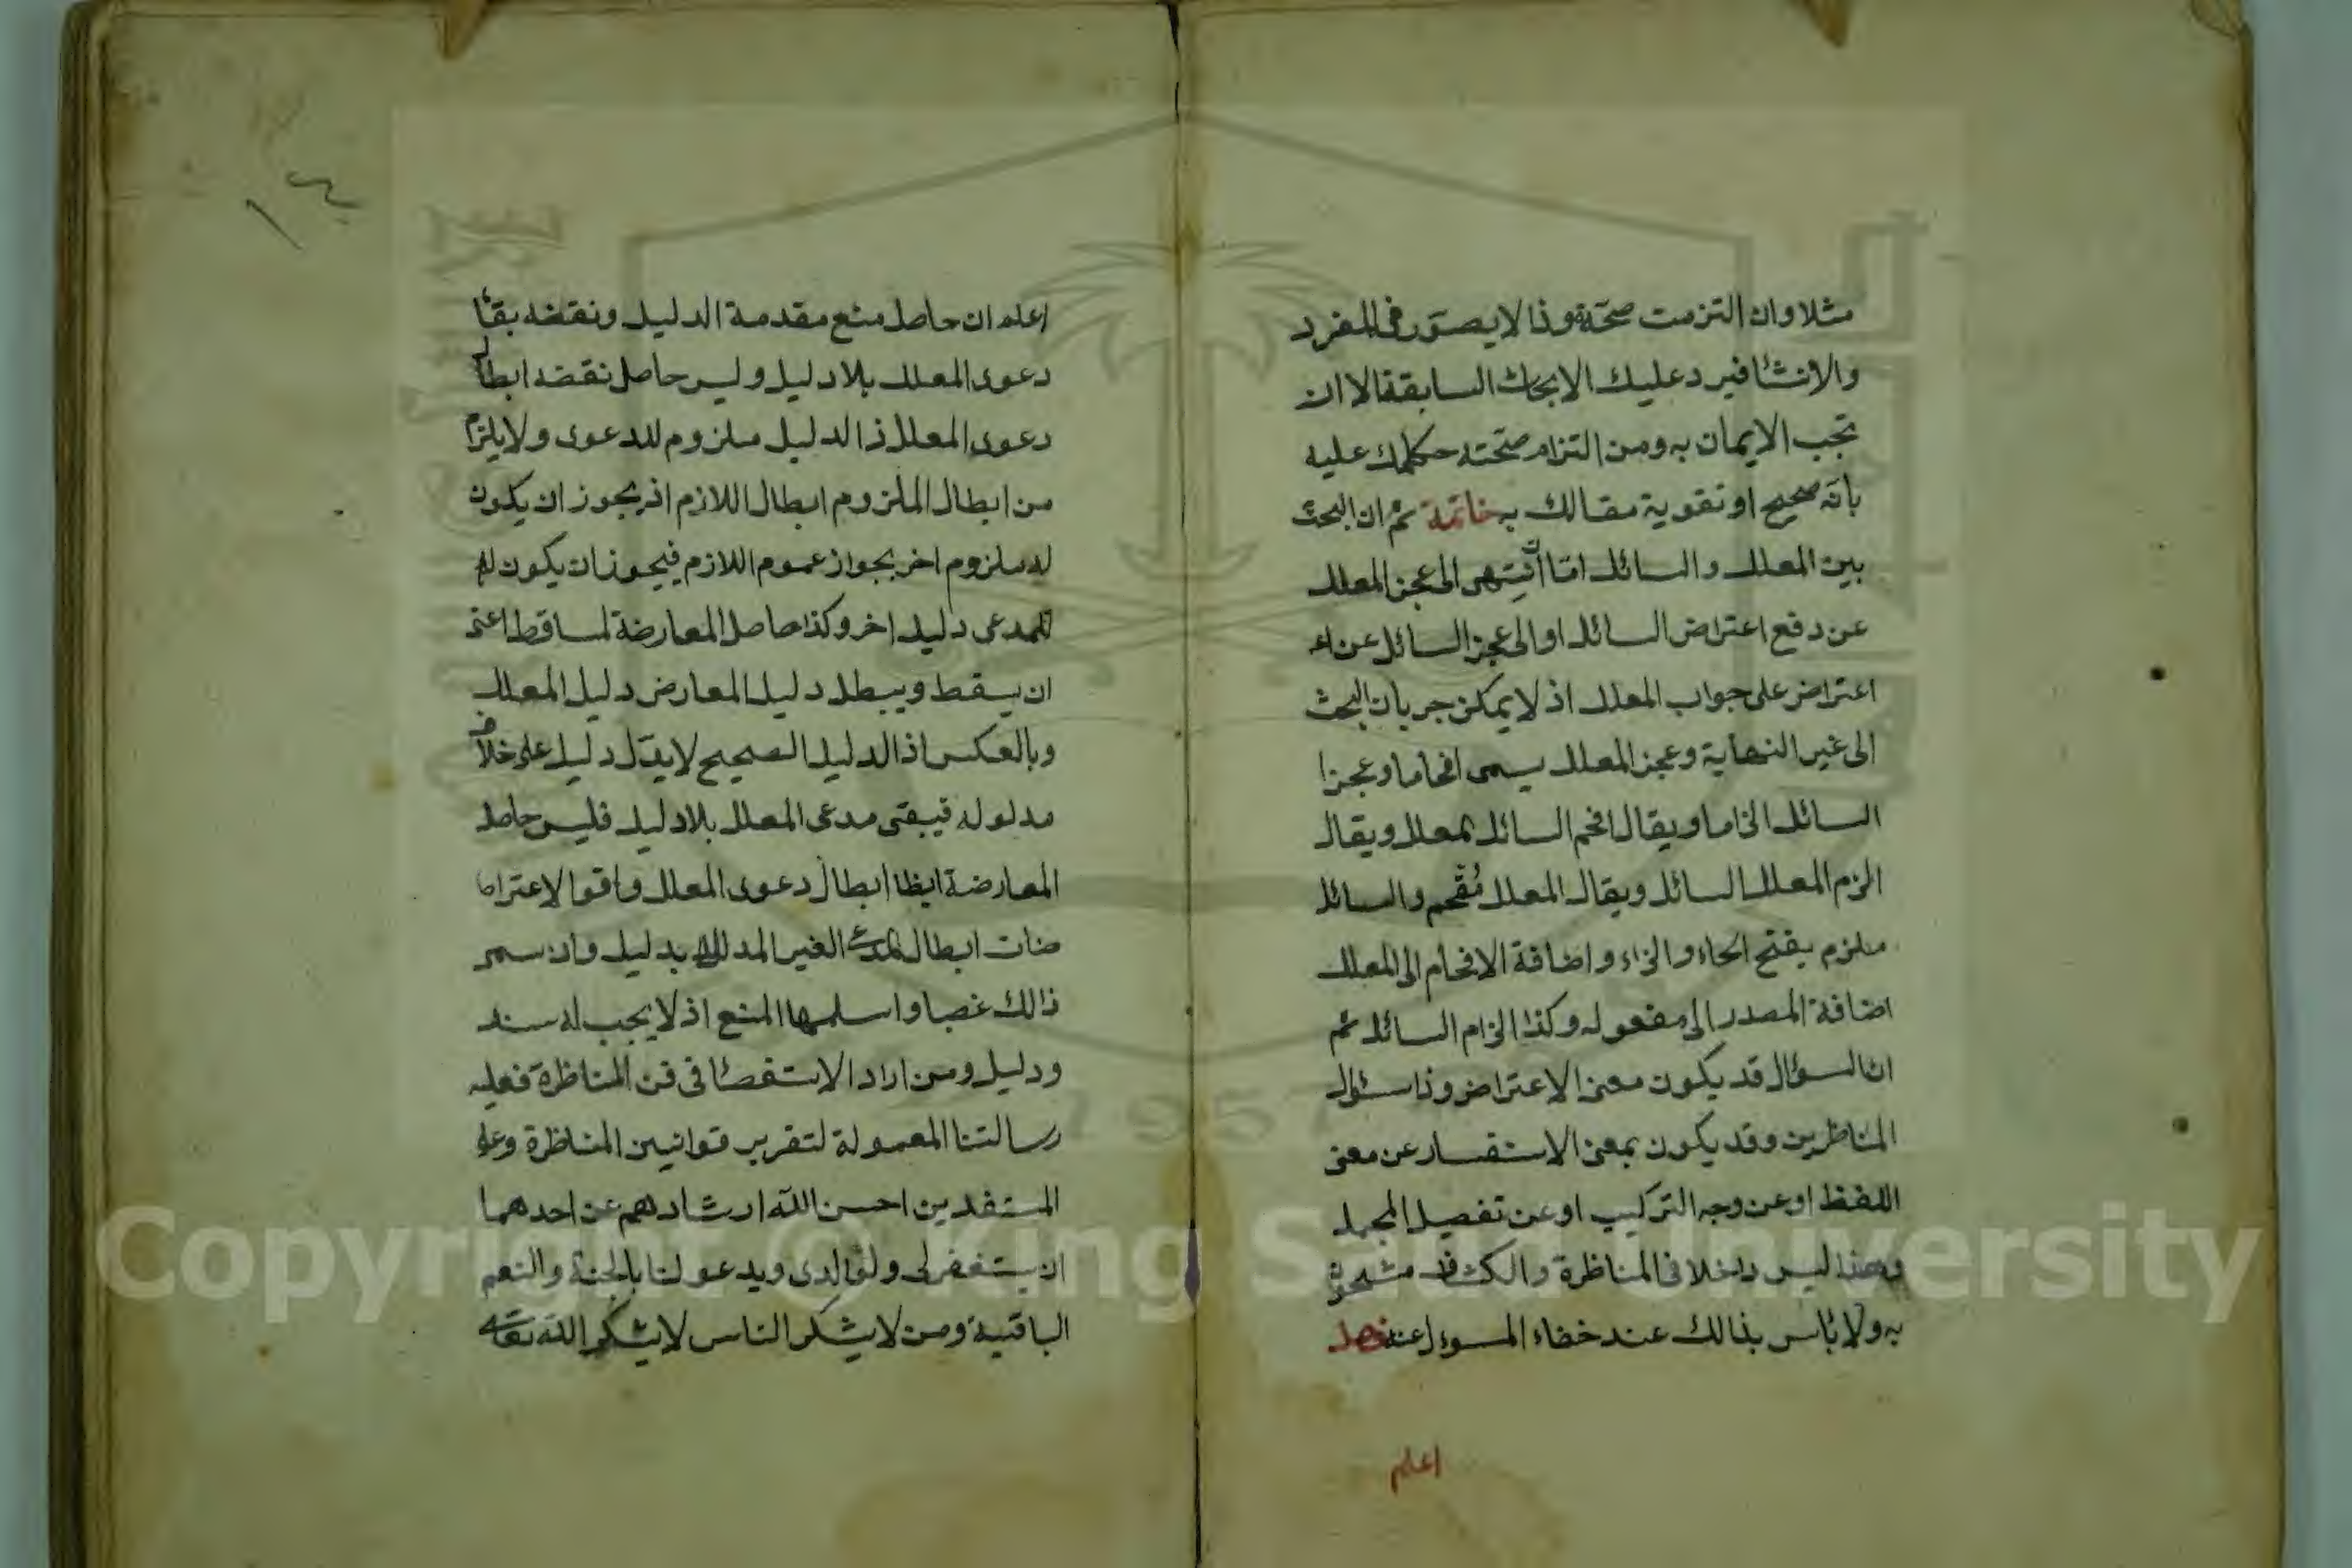 مثلا وان التزمت صحته وذا لا يصور فى المفرد
والانشا فيرد عليك الابحاث السابقة الا ان
تجب الايمان به ومن التزام صحته حكمك عليه
بانه صحيح او تقوية مقالك به خاتمة ثم ان البحث
بين المعلل والسائل اما ان ينتهى الى عجز المعلل
عن دفع اعتراض السائل او الى عجز السائل عن اء
اعتراض على جواب المعلل اذ لا يمكن جريان البحث
الى غير النهاية وعجز المعلل يسمى افحاما وعجزا
السائل الزاما ويقال افحم السائل لمعلل ويقال
الزم المعلل السائل ويقال المعلل مفحم والسائل
ملزم بفتح الحاء والزاء واضافة الافحام الى المعلل
اضافة المصدر الى مفعوله وكذا الزام السائل ثم
ان السؤال قد يكون معنى الاعتراض وذا سئوال
المناظرين وقد يكون بمعنى الاستفسار عن معنى
اللفظ او عن وجه التركيب او عن تفصيل المجمل
وهذا ليس داخلا فى المناظرة والكشاف مشحون
به ولا بأس بذالك عند خفاء المسوءل عنه فصل
اعلم
١٤
اعلم ان حاصل منع مقدمة الدليل ونقضه بقاء
دعوى المعلل بلا دليل وليس حاصل نقضه ابطال
دعوى المعلل اذ الدليل ملزوم للدعوى ولا يلزم
من ابطال الملزوم ابطال اللازم اذ يجوز ان يكون
له ملزوم اخر بجواز عموم اللازم فيجوز ان يكون له
للمدعى دليل اخر وكذا حاصل المعارضة لساقط اعنى
ان يسقط ويبطل دليل المعارض دليل المعلل
وبالعكس اذ الدليل الصحيح لا يدل دليل على خلاف
مدلوله فيبقى مدعى المعلل بلا دليل فليس حاصل
المعارضة ايظا ابطال دعوى المعلل واقوا لاعتراضا
ضات ابطال المدعى الغير المدلل بدليل وان سمى
ذالك غصبا واسلمها المنع اذ لا يجب له سند
ودليل ومن اراد الاستقصا فى فن المناظرة فعليه
رسالتنا المعمولة لتقرير قوانين المناظرة وعلى
المستفدين احسن الله ارشادهم عن احدهما
ان يستغفر لى ولوالدى ويدعو لنا بالجنة والنعم
الباقية ومن لا يشكر الناس لا يشكر الله تعالى